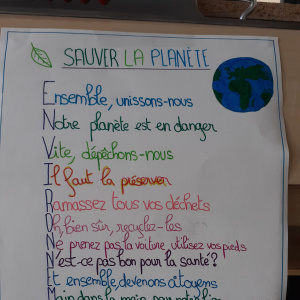 SAUVER LA PLANÈTE
Ensemble, unissons-nous
Notre planète est en danger
Vite, dépêchons-nous
Il faut la préserver
Ramassez tous vos déchets
Oh, bien sûr, recyclez-les
Ne prenez pas la voiture, utilisez vos pieds
N'est-ce pas bon pour la santé?
Et ensemble, devenons citoyens
Main dans la main, pour notre bien